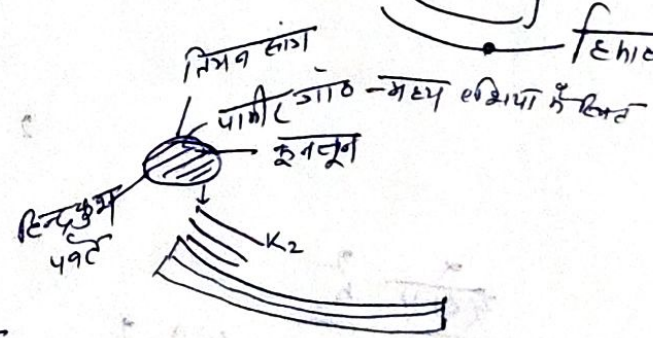 तियन सांग
पामीर गाठ - मध्य एशिया में स्थित
कुनलून
हिन्दुकुश
पर्वत
K2